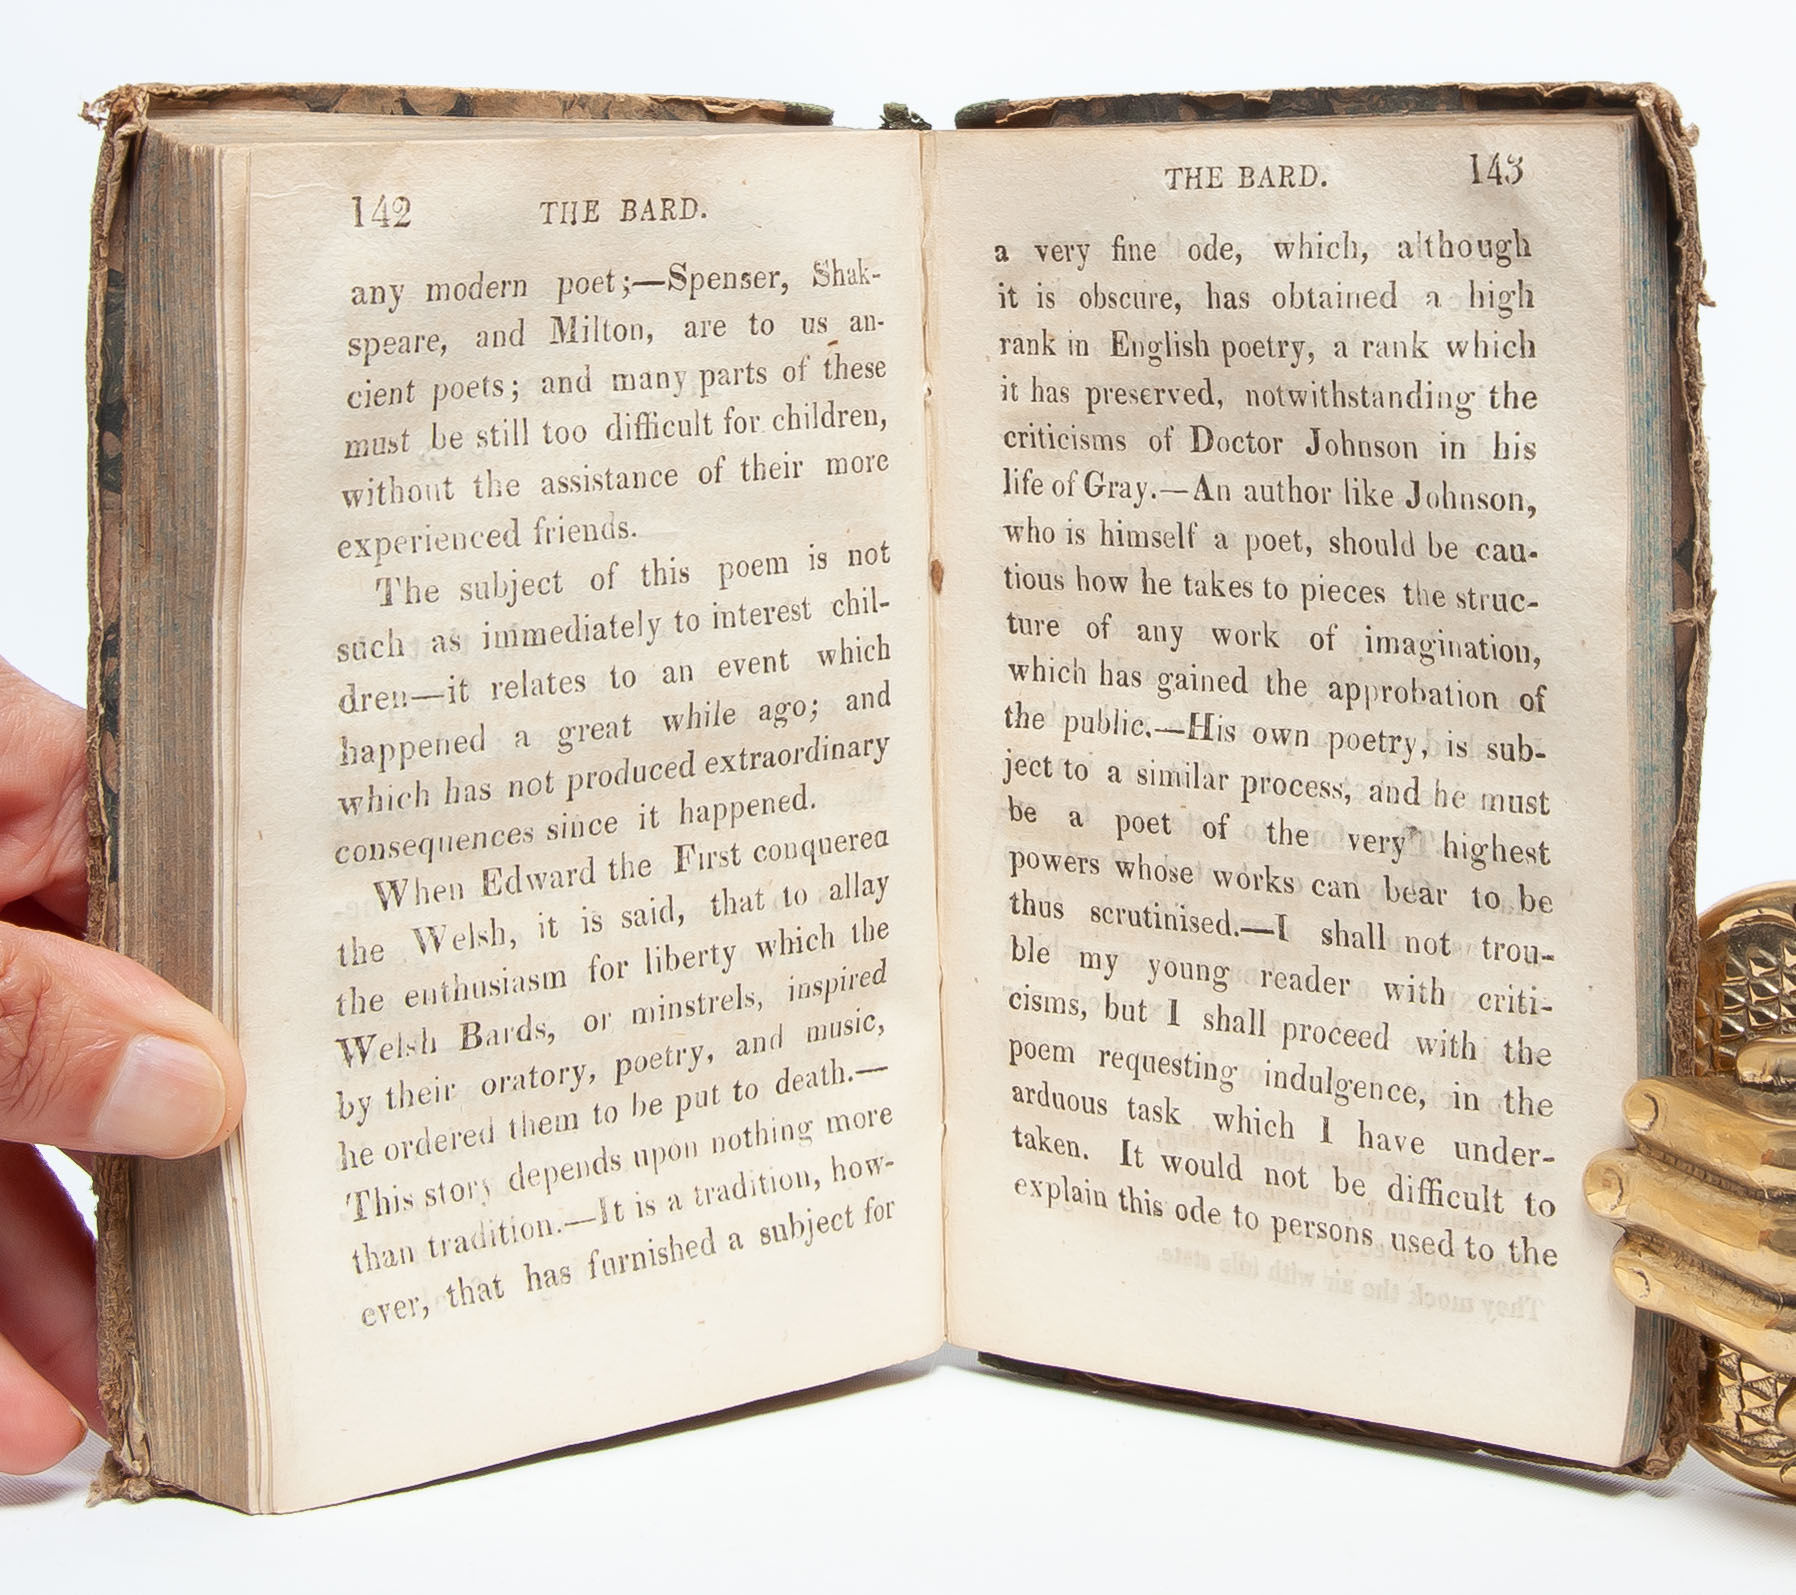 142 THE BARD.
any modern poet;—Spenser, Shak-
speare, and Milton, are to us an-
cient poets; and many parts of these
must be still too difficult for children,
without the assistance of their more
experienced friends.
The subject of this poem is not
such as immediately to interest chil-
dren—it relates to an event which
happened a great while ago; and
which has not produced extraordinary
consequences since it happened.
When Edward the First conquered
the Welsh, it is said, that to allay
the enthusiasm for liberty which the
Welsh Bards, or minstrels, inspired
by their oratory, poetry, and music,
he ordered them to be put to death.—
This story depends upon nothing more
than tradition.—It is a tradition, how-
ever, that has furnished a subject for
THE BARD. 143
a very fine ode, which, although
it is obscure, has obtained a high
rank in English poetry, a rank which
it has preserved, notwithstanding the
criticisms of Doctor Johnson in his
life of Gray.—An author like Johnson,
who is himself a poet, should be cau-
tious how he takes to pieces the struc-
ture of any work of imagination,
which has gained the approbation of
the public.—His own poetry, is sub-
ject to a similar process, and he must
be a poet of the very highest
powers whose works can bear to be
thus scrutinised.—I shall not trou-
ble my young reader with criti-
cisms, but I shall proceed with the
poem requesting indulgence, in the
arduous task which I have under-
taken. It would not be difficult to
explain this ode to persons used to the